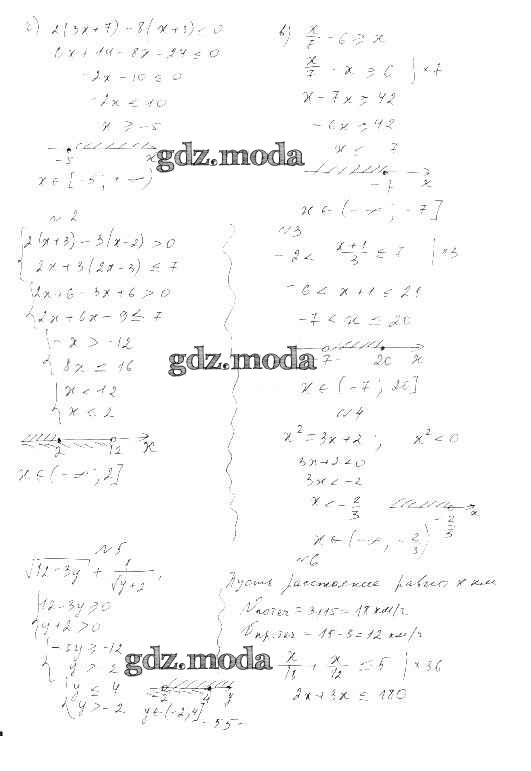 2(3x+7) - 8(x+3) ≤ 0
6x+14-8x-24 ≤ 0
-2x-10 ≤ 0
-2x ≤ 10
x ≥ -5
-5 x
x ∈ [-5; +∞)
в) x/7 - 6 ≥ x
x/7 - x ≥ 6 | ×7
x - 7x ≥ 42
-6x ≥ 42
x ≤ 7
-7 x
x ∈ (-∞; -7]
gdz.moda
№2
{2(x+3) - 3(x-2) > 0
2x+3(2x-3) ≤ 7
{2x+6-3x+6 > 0
2x+6x-9 ≤ 7
{-x > -12
8x ≤ 16
{x < 12
x ≤ 2
2 12 x
x ∈ (-∞; 2]
№3
-2 < (x+1)/3 ≤ 7 | ×3
-6 < x+1 ≤ 21
-7 < x ≤ 20
-7 20 x
x ∈ (-7; 20]
gdz.moda
№4
x² = 3x+2; x² < 0
3x+2 < 0
3x < -2
x < -2/3
-2/3 x
x ∈ (-∞, -2/3)
№5
√(12-3y) + 1/√(y+2),
{12-3y ≥ 0
y+2 > 0
{-3y ≥ -12
y > 2
{y ≤ 4
y > -2
-2 4 y
y ∈ (-2, 4]
№6
Пусть расстояние равно x км
Vпо теч = 3+15 = 18 км/ч
Vпр. теч = 15-3 = 12 км/ч
x/18 + x/12 ≤ 5 | ×36
2x+3x ≤ 180
gdz.moda
-55-